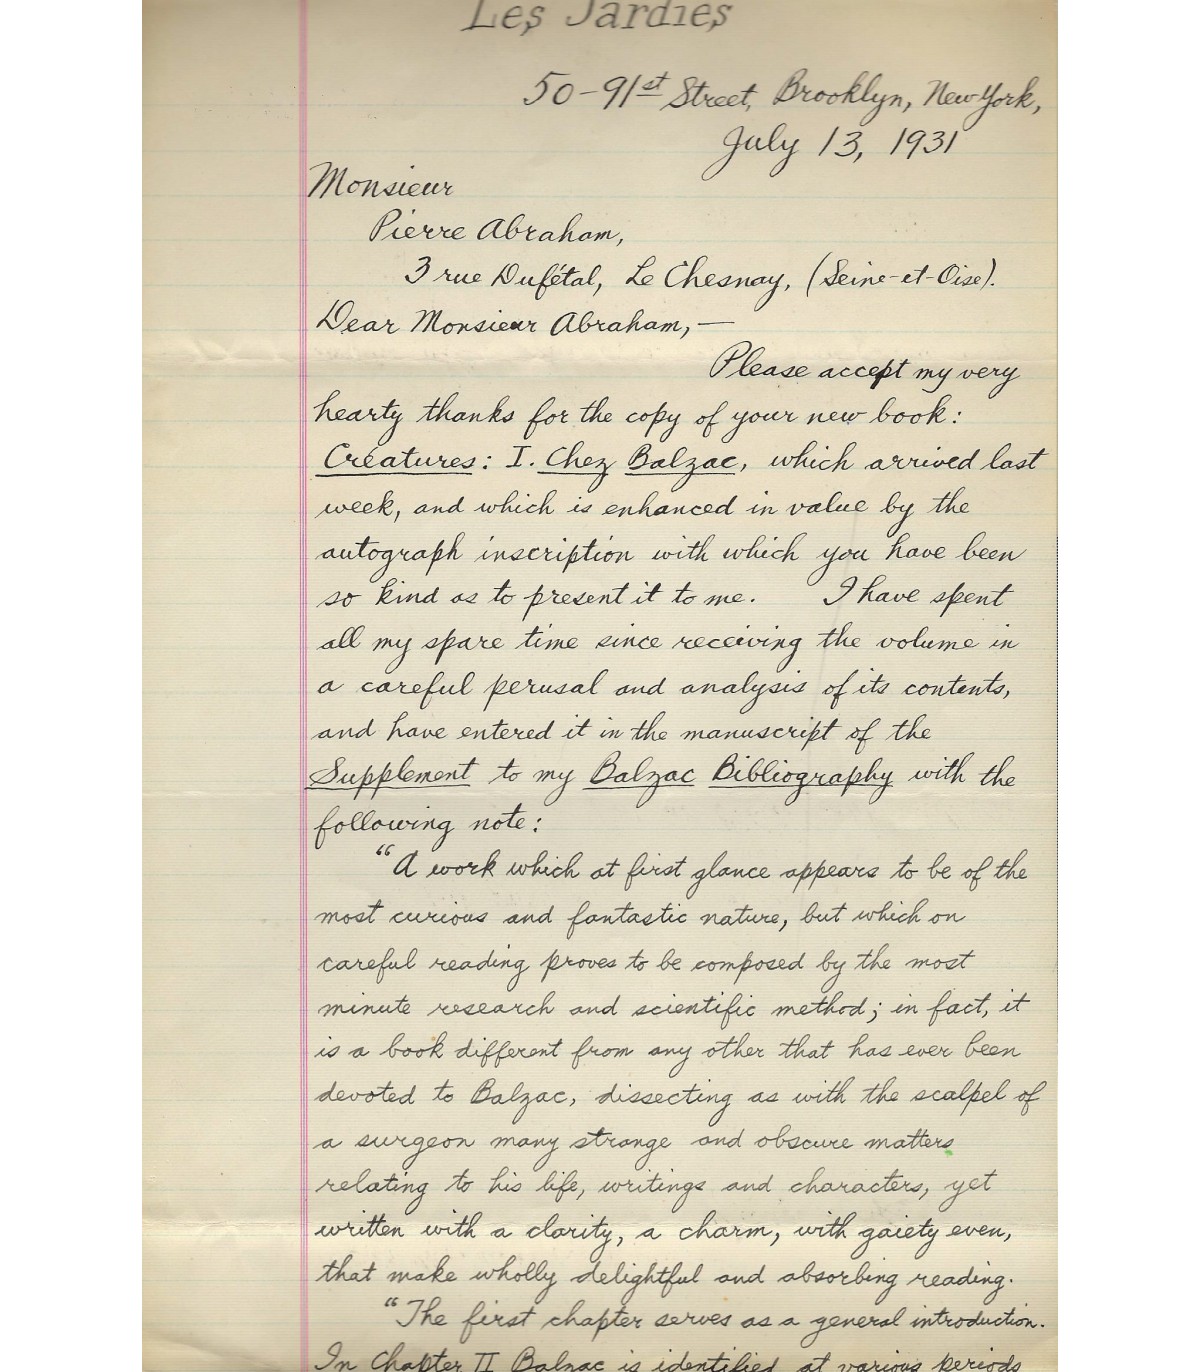 Les Jardies
50-91st Street, Brooklyn, New York,
July 13, 1931
Monsieur
Pierre Abraham,
3 rue Dufétal, Le Chesnay, (Seine-et-Oise).
Dear Monsieur Abraham,—
Please accept my very
hearty thanks for the copy of your new book:
Créatures: I. Chez Balzac, which arrived last
week, and which is enhanced in value by the
autograph inscription with which you have been
so kind as to present it to me. I have spent
all my spare time since receiving the volume in
a careful perusal and analysis of its contents,
and have entered it in the manuscript of the
Supplement to my Balzac Bibliography with the
following note:
"A work which at first glance appears to be of the
most curious and fantastic nature, but which on
careful reading proves to be composed by the most
minute research and scientific method; in fact, it
is a book different from any other that has ever been
devoted to Balzac, dissecting as with the scalpel of
a surgeon many strange and obscure matters
relating to his life, writings and characters, yet
written with a clarity, a charm, with gaiety even,
that make wholly delightful and absorbing reading.
"The first chapter serves as a general introduction.
In Chapter II Balzac is identified at various periods